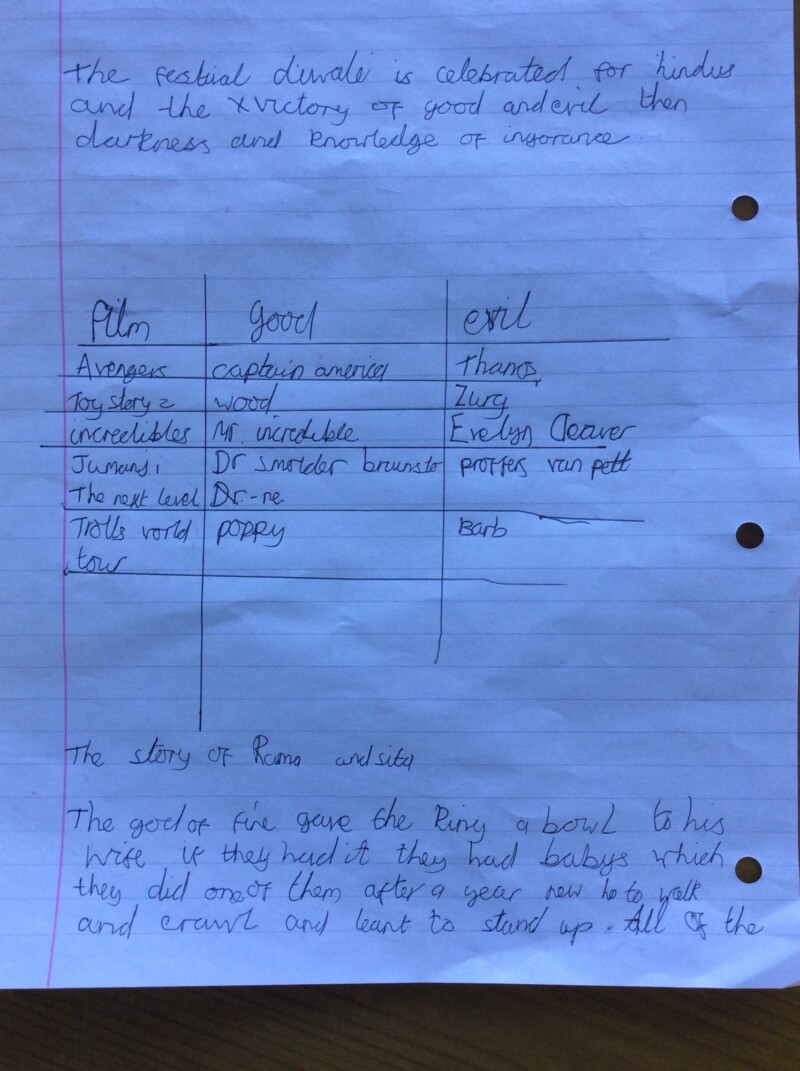 The festival diwali is celebrated for hindus
and the x victory of good and evil then
darkness and knowledge of insorance
film good evil
Avengers captain america Thanos
Toy story 2 wood Zurg
incredibles Mr. incredible Evelyn Deaver
Jumanji Dr smolder braunsto proffers van pett
The next level Dr.-ne
Trolls vorld poppy Barb
tour
The story of Rama and sita
The god of fire gave the King a bowl to his
wife if they had it they had babys which
they did one of them after a year new ho to walk
and crawl and leant to stand up. All of the